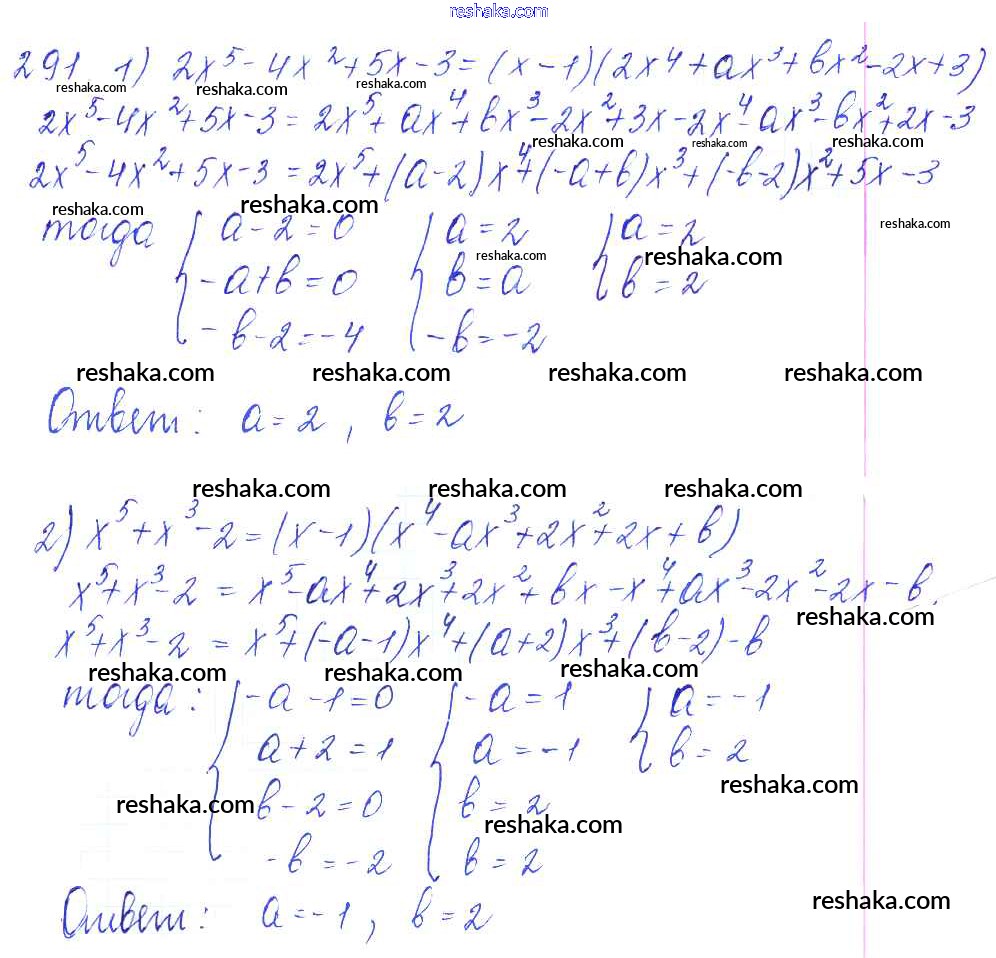 reshaka.com
291 1) 2x⁵-4x²+5x-3=(x-1)(2x⁴+ax³+bx²-2x+3)
reshaka.com reshaka.com reshaka.com
2x⁵-4x²+5x-3=2x⁵+ax⁴+bx³-2x²+3x-2x⁴-ax³-bx²+2x-3
reshaka.com reshaka.com reshaka.com
2x⁵-4x²+5x-3=2x⁵+(a-2)x⁴+(-a+b)x³+(-b-2)x²+5x-3
reshaka.com reshaka.com reshaka.com
тогда { a-2=0 { a=2 { a=2
reshaka.com reshaka.com
-a+b=0 b=a b=2
-b-2=-4 -b=-2
reshaka.com reshaka.com reshaka.com reshaka.com
Ответ: a=2, b=2
reshaka.com reshaka.com reshaka.com
2) x⁵+x³-2=(x-1)(x⁴-ax³+2x²+2x+b)
x⁵+x³-2=x⁵-ax⁴+2x³+2x²+bx-x⁴+ax³-2x²-2x-b.
reshaka.com
x⁵+x³-2=x⁵+(-a-1)x⁴+(a+2)x³+(b-2)-b
reshaka.com reshaka.com reshaka.com
тогда: { -a-1=0 { -a=1 { a=-1
a+2=1 a=-1 b=2
reshaka.com
reshaka.com b-2=0 b=2
reshaka.com
-b=-2 b=2
reshaka.com
Ответ: a=-1, b=2